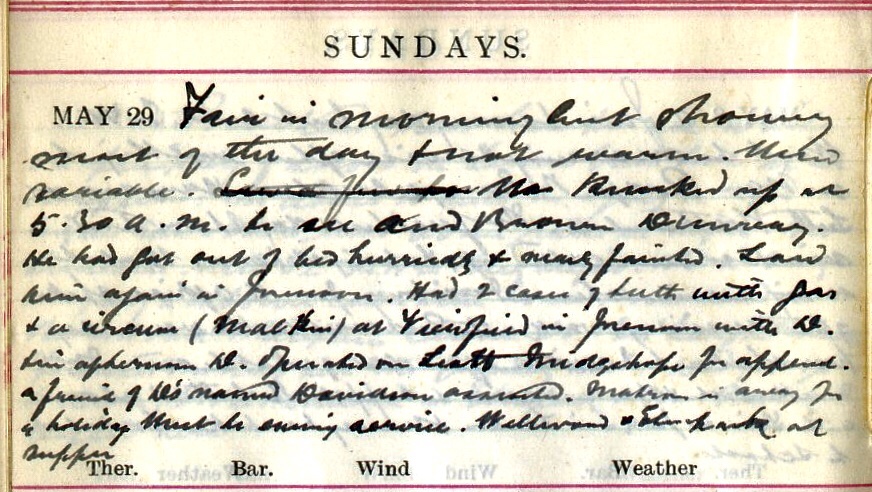 SUNDAYS.
MAY 29 Fair in morning but showery
most of the day & not warm. Wind
variable. Knocked up at
5.30 a.m. to see Brown
He had got out of bed hurriedly & nearly fainted. Saw
him again in forenoon. Had 2 cases of teeth with gas
& a circum (Malkin) at in forenoon with D.
& in afternoon D. operated on Scott for append.
a friend of D's named Davidson assisted. Matron is away for
a holiday Went to evening service. Wellwood & at
supper
Ther. Bar. Wind Weather